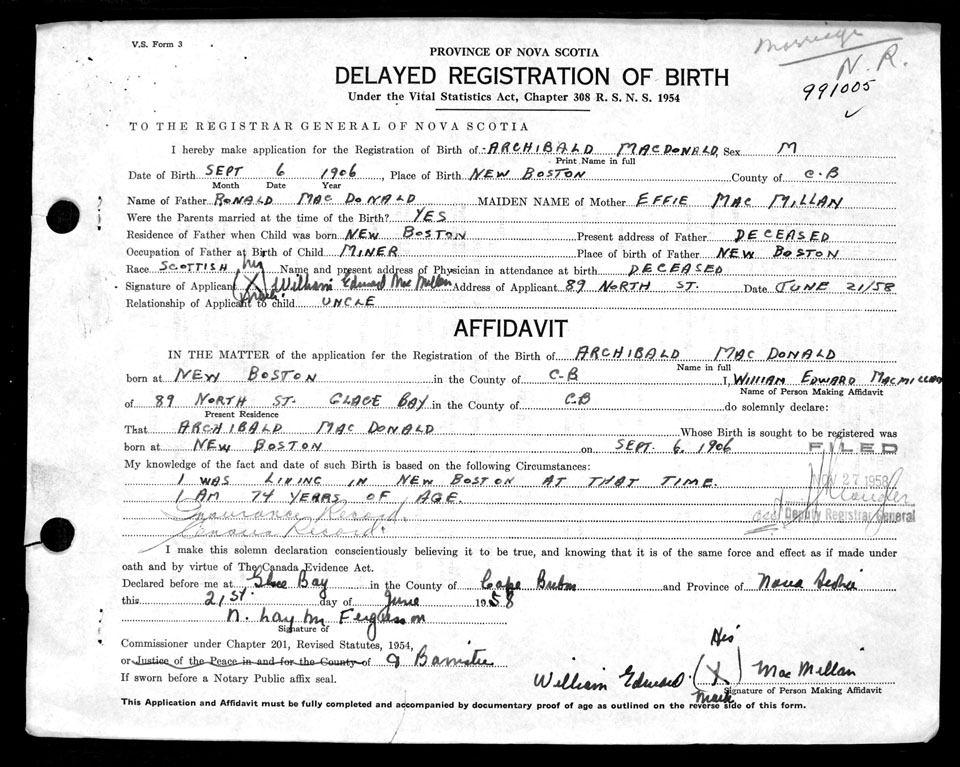 V.S. Form 3
Marriage
N.R.
991005
PROVINCE OF NOVA SCOTIA
DELAYED REGISTRATION OF BIRTH
Under the Vital Statistics Act, Chapter 308 R. S. N. S. 1954
TO THE REGISTRAR GENERAL OF NOVA SCOTIA
I hereby make application for the Registration of Birth of ARCHIBALD MACDONALD, Sex M
Print Name in full
Date of Birth SEPT 6 1906, Place of Birth NEW BOSTON County of C-B
Month Date Year
Name of Father RONALD MAC DONALD MAIDEN NAME of Mother EFFIE MAC MILLAN
Were the Parents married at the time of the Birth? YES
Residence of Father when Child was born NEW BOSTON Present address of Father DECEASED
Occupation of Father at Birth of Child MINER Place of birth of Father NEW BOSTON
Race SCOTTISH Name and present address of Physician in attendance at birth DECEASED
his
Signature of Applicant (X) William Edward Mac Millan Address of Applicant 89 NORTH ST. Date JUNE 21/58
Relationship of Applicant to child UNCLE
AFFIDAVIT
IN THE MATTER of the application for the Registration of the Birth of ARCHIBALD MAC DONALD
Name in full
born at NEW BOSTON in the County of C-B I, WILLIAM EDWARD MACMILLAN
Name of Person Making Affidavit
of 89 NORTH ST. GLACE BAY in the County of C.B do solemnly declare:
Present Residence
That ARCHIBALD MAC DONALD Whose Birth is sought to be registered was
born at NEW BOSTON on SEPT. 6, 1906
FILED
My knowledge of the fact and date of such Birth is based on the following Circumstances:
I WAS LIVING IN NEW BOSTON AT THAT TIME.
NOV 27 1958
I AM 74 YEARS OF AGE.
Insurance Record.
Deputy Registrar General
Census Record.
I make this solemn declaration conscientiously believing it to be true, and knowing that it is of the same force and effect as if made under
oath and by virtue of The Canada Evidence Act.
Declared before me at Glace Bay in the County of Cape Breton and Province of Nova Scotia
this 21st. day of June 1958
Ferguson
Signature of
Commissioner under Chapter 201, Revised Statutes, 1954,
or Justice of the Peace in and for the County of Barrister
If sworn before a Notary Public affix seal.
His
William Edward (X) Mac Millan
Mark
Signature of Person Making Affidavit
This Application and Affidavit must be fully completed and accompanied by documentary proof of age as outlined on the reverse side of this form.